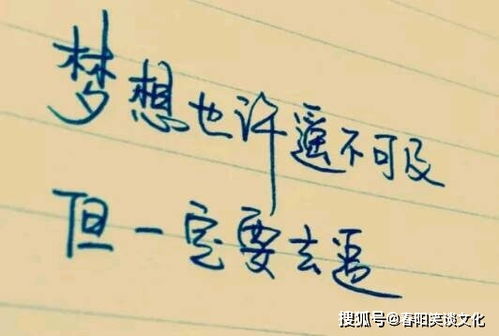 梦想也许遥不可及
但一定要去追
搜狐号@春阳笑谈文化